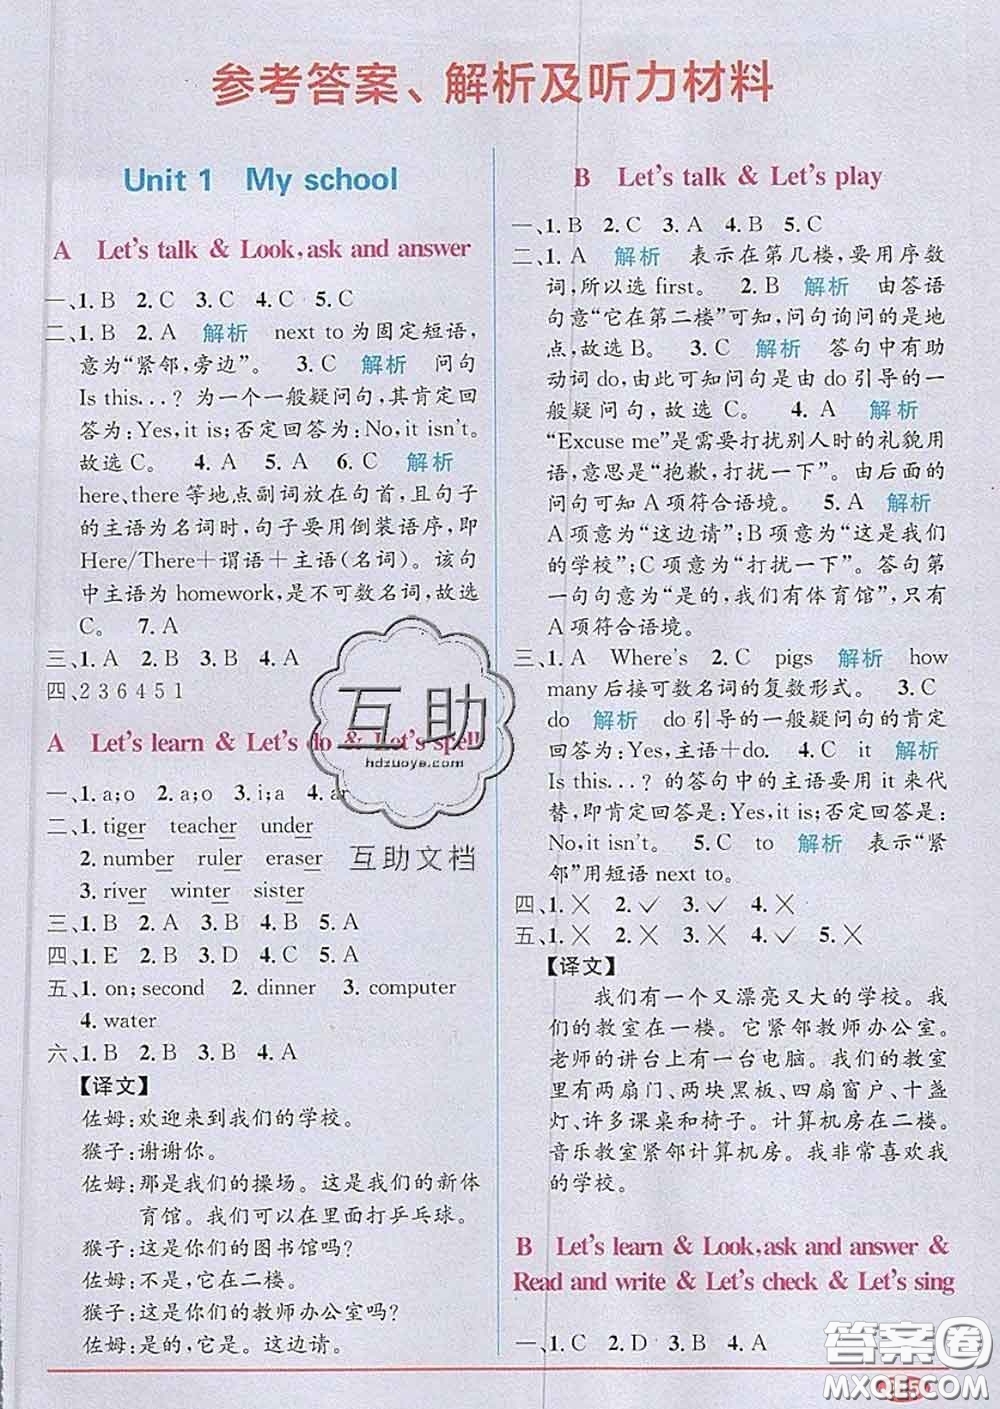 参考答案、解析及听力材料
Unit 1 My school
A Let's talk & Look, ask and answer
一、1. B 2. C 3. C 4. C 5. C
二、1. B 2. A 解析 next to 为固定短语,
意为“紧邻,旁边”。 3. C 解析 问句
Is this...? 为一个一般疑问句,其肯定回
答为:Yes, it is;否定回答为:No, it isn't。
故选 C。 4. A 5. A 6. C 解析
here、there 等地点副词放在句首,且句子
的主语为名词时,句子要用倒装语序,即
Here/There+谓语+主语(名词)。该句
中主语为 homework,是不可数名词,故选
C。 7. A
三、1. A 2. B 3. B 4. A
四、2 3 6 4 5 1
A Let's learn & Let's do & Let's spell
一、1. a;o 2. a;o 3. i;a 4. ar
二、1. tiger teacher under
2. number ruler eraser
3. river winter sister
三、1. B 2. A 3. B 4. B 5. A
四、1. E 2. B 3. D 4. C 5. A
五、1. on; second 2. dinner 3. computer
4. water
六、1. B 2. B 3. B 4. A
【译文】
佐姆:欢迎来到我们的学校。
猴子:谢谢你。
佐姆:那是我们的操场。这是我们的新体
育馆。我们可以在里面打乒乓球。
猴子:这是你们的图书馆吗?
佐姆:不是,它在二楼。
猴子:这是你们的教师办公室吗?
佐姆:是的,它是。这边请。
B Let's talk & Let's play
一、1. B 2. C 3. A 4. B 5. C
二、1. A 解析 表示在第几楼,要用序数
词,所以选 first。 2. B 解析 由答语
句意“它在第二楼”可知,问句询问的是地
点,故选 B。 3. C 解析 答句中有助
动词 do,由此可知问句是由 do 引导的一
般疑问句,故选 C。 4. A 解析
“Excuse me”是需要打扰别人时的礼貌用
语,意思是“抱歉,打扰一下”。由后面的
问句可知 A 项符合语境。 5. A 解析
A 项意为“这边请”;B 项意为“这是我们
的学校”;C 项意为“打扰一下”。答句第
一句句意为“是的,我们有体育馆”,只有
A 项符合语境。
三、1. A Where's 2. C pigs 解析 how
many 后接可数名词的复数形式。 3. C
do 解析 do 引导的一般疑问句的肯定
回答为:Yes,主语+do. 4. C it 解析
Is this...? 的答句中的主语要用 it 来代
替,即肯定回答是:Yes, it is. 否定回答是:
No, it isn't. 5. C to 解析 表示“紧
邻”用短语 next to。
四、1. ✕ 2. ✓ 3. ✓ 4. ✕
五、1. ✕ 2. ✓ 3. ✓ 4. ✓ 5. ✕
【译文】
我们有一个又漂亮又大的学校。我
们的教室在一楼。它紧邻教师办公室。
老师的讲台上有一台电脑。我们的教室
里有两扇门、两块黑板、四扇窗户、十盏
灯、许多课桌和椅子。计算机房在二楼。
音乐教室紧邻计算机房。我非常喜欢我
的学校。
B Let's learn & Look, ask and answer &
Read and write & Let's check & Let's sing
一、1. C 2. D 3. B 4. A
互助
hdzuoye.com
互助文档
答案圈
MXQE.COM